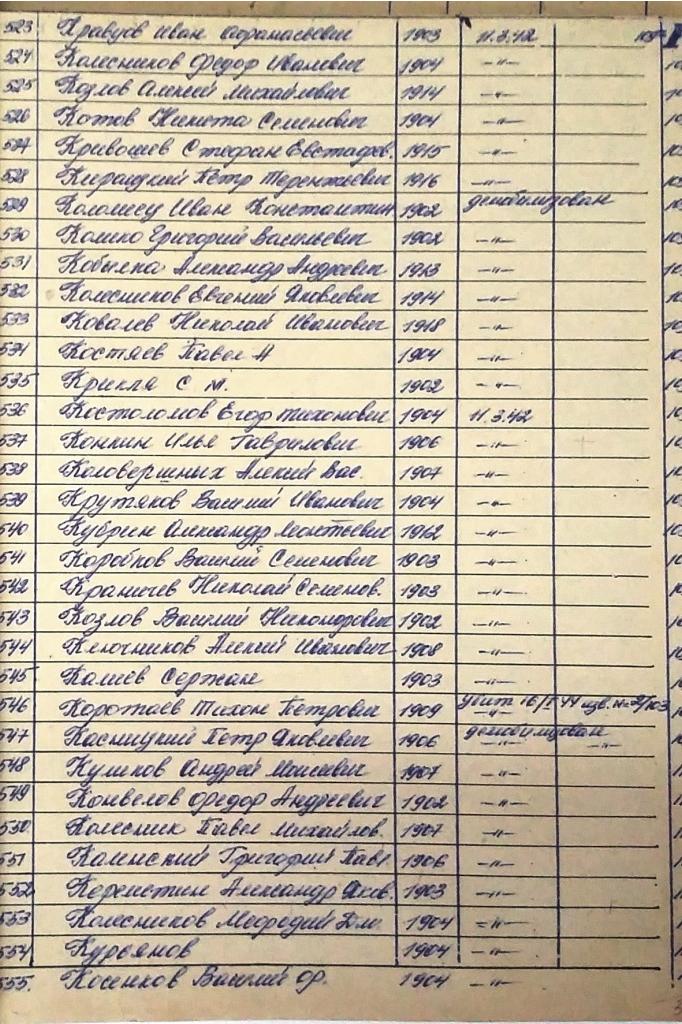 523 Кравцов Иван Афанасьевич 1903 11.3.42
524 Колесников Федор Иванович 1904 -"-
525 Козлов Алексей Михайлович 1914 -"-
526 Котов Никита Семенович 1904 -"-
527 Кривошев Стефан Евстафев. 1915 -"-
528 Петр Терентьевич 1916 -"-
529 Иван Константин 1902 демобилизован
530 Григорий Васильевич 1902 -"-
531 Кобылка Александр Андреевич 1913 -"-
532 Колесников Евгений Яковлевич 1914 -"-
533 Ковалев Николай Иванович 1918 -"-
534 Костяев Павел А 1904 -"-
535 Крикля С М. 1902 -"-
536 Костоломов Егор Тихонович 1904 11.3.42
537 Конкин Илья Гаврилович 1906 -"-
538 Коловершных Алексей Вас. 1907 -"-
539 Крутяков Василий Иванович 1904 -"-
540 Кубрин Александр Леонтьевич 1912 -"-
541 Коробков Василий Семенович 1903 -"-
542 Николай Семенов. 1903 -"-
543 Козлов Василий Никонорович 1902 -"-
544 Ключников Алексей Иванович 1908 -"-
545 Калиев Сержан 1903 -"-
546 Коротаев Тихон Петрович 1909 убит 16/I 44 изв. №
547 Касницкий Петр Яковлевич 1906 демобилизован
548 Андрей Моисеевич 1907 -"-
549 Конвелов Федор Андреевич 1902 -"-
550 Колесник Павел Михайлов. 1907 -"-
551 Каменский Григорий Павл 1906 -"-
552 Александр Яков. 1903 -"-
553 Колесников Мефодий 1904 -"-
554 Курьянов 1904 -"-
555. Косенков Василий Ф. 1904 -"-